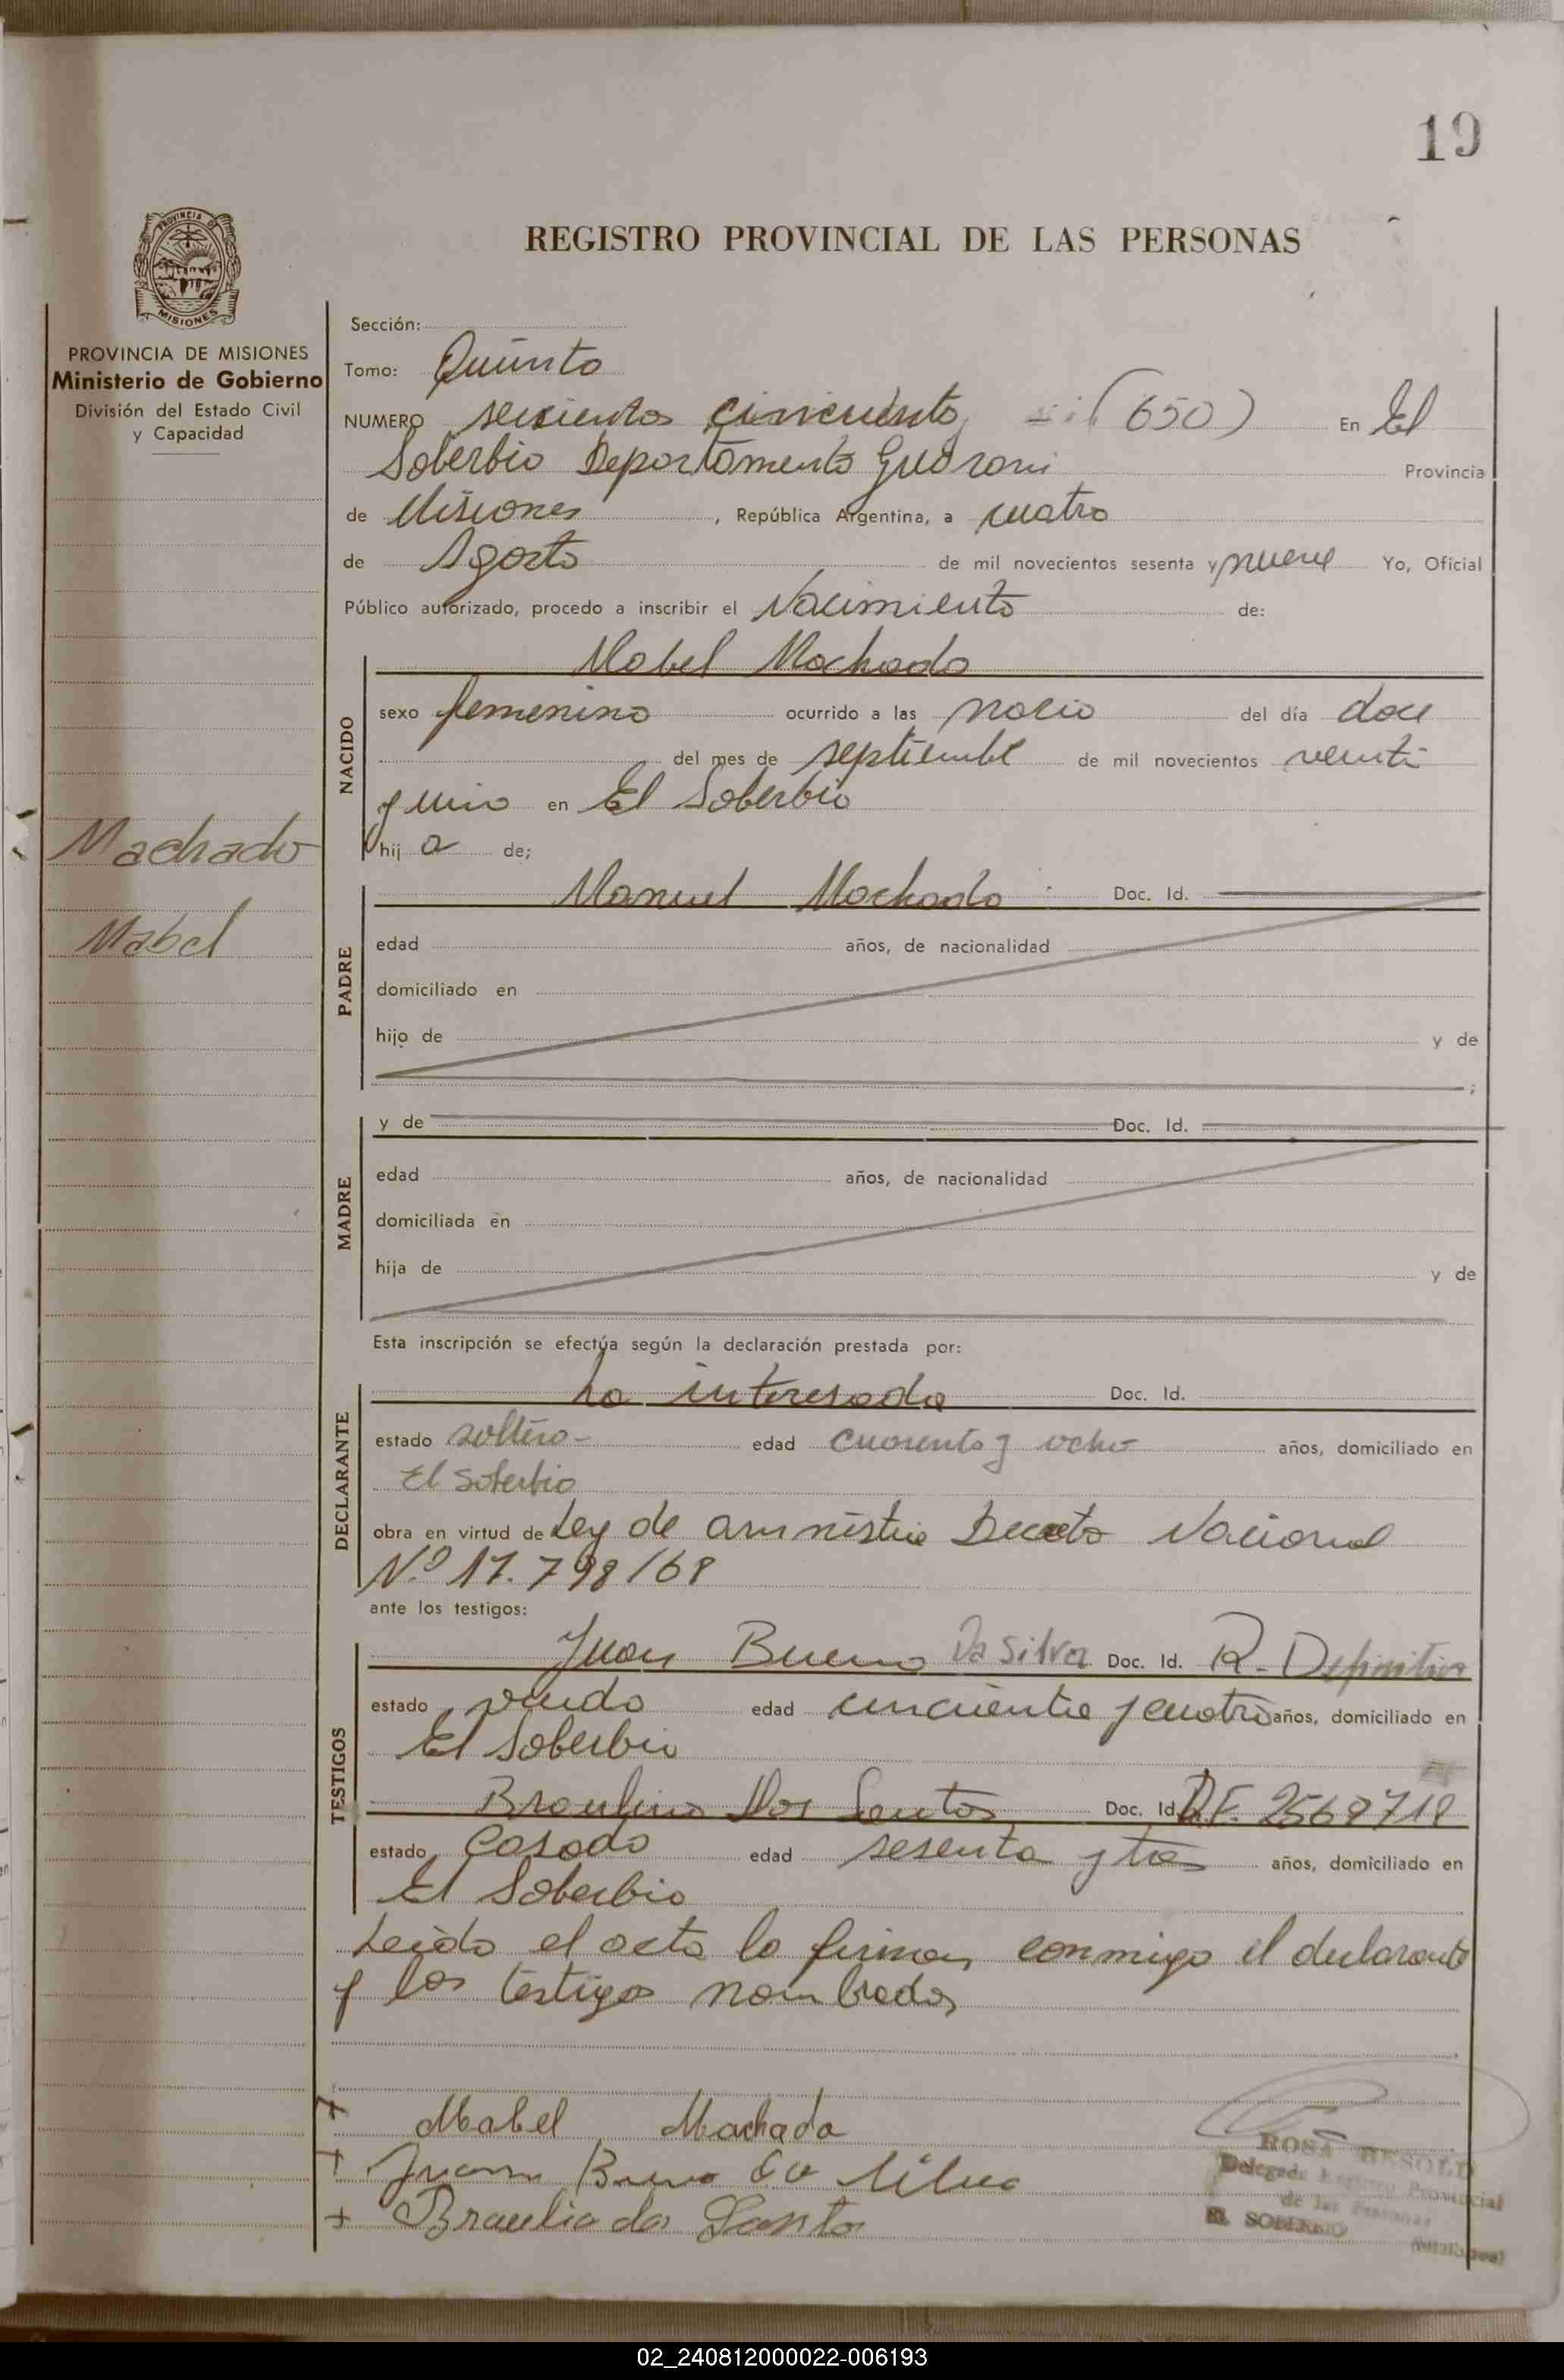 19
REGISTRO PROVINCIAL DE LAS PERSONAS
PROVINCIA DE MISIONES
Ministerio de Gobierno
División del Estado Civil
y Capacidad
Machado
Mabel
Sección:
Tomo: Quinto
NUMERO seiscientos cincuenta (650) En El
Soberbio Departamento Guarani Provincia
de Misiones, República Argentina, a cuatro
de Agosto de mil novecientos sesenta y nueve Yo, Oficial
Público autorizado, procedo a inscribir el Nacimiento de:
NACIDO
Mabel Machado
sexo femenino ocurrido a las del día doce
del mes de septiembre de mil novecientos veinti
y uno en El Soberbio
hij a de;
PADRE
Manuel Machado Doc. Id.
edad años, de nacionalidad
domiciliado en
hijo de y de
;
MADRE
y de Doc. Id.
edad años, de nacionalidad
domiciliada en
hija de y de
Esta inscripción se efectúa según la declaración prestada por:
DECLARANTE
La interesada Doc. Id.
estado soltera - edad cuarenta y ocho años, domiciliado en
El Soberbio
obra en virtud de Ley de amnistia Decreto Nacional
Nº 17.798/68
ante los testigos:
TESTIGOS
Juan Bueno Da Silva Doc. Id. R. Definitiva
estado viudo edad cincuenta y cuatro años, domiciliado en
El Soberbio
Braulino Dos Santos Doc. Id. 2568718
estado Casado edad sesenta y tres años, domiciliado en
El Soberbio
Leido el acta la firman conmigo el declarante
y los testigos nombrados
Mabel Machado
Juan Bueno da Silva
Braulio dos Santos
ROSA BESOLD
Delegada Registro Provincial
de las Personas
EL SOBERBIO (Misiones)
02_240812000022-006193